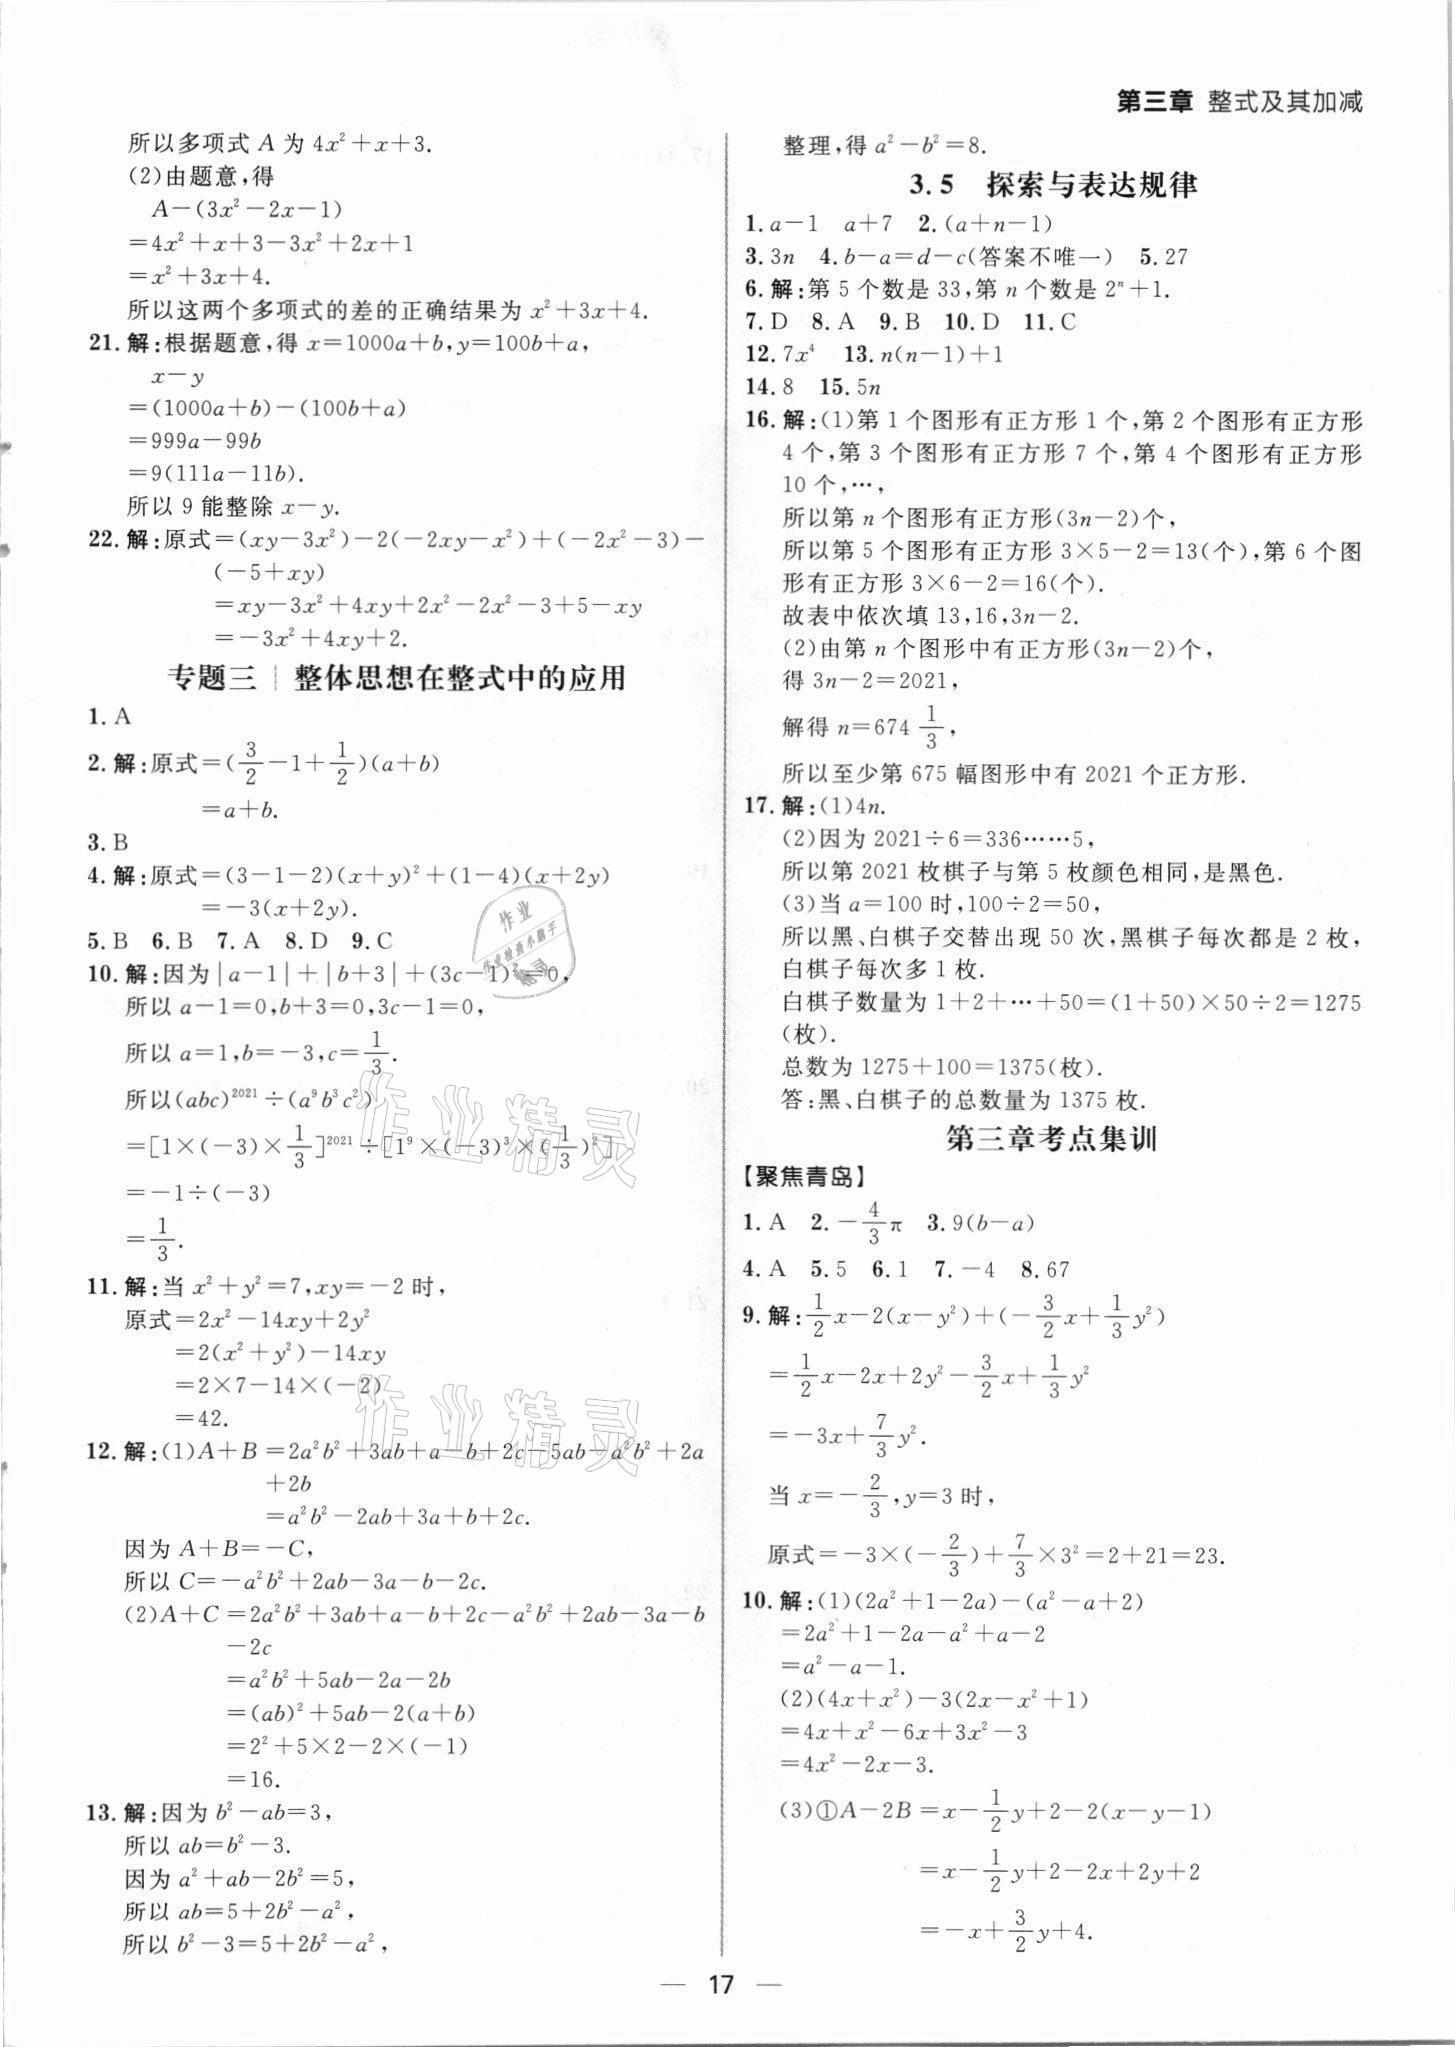 第三章 整式及其加减
所以多项式 A 为 4x²+x+3.
(2)由题意,得
A-(3x²-2x-1)
=4x²+x+3-3x²+2x+1
=x²+3x+4.
所以这两个多项式的差的正确结果为 x²+3x+4.
21.解:根据题意,得 x=1000a+b,y=100b+a,
x-y
=(1000a+b)-(100b+a)
=999a-99b
=9(111a-11b).
所以 9 能整除 x-y.
22.解:原式=(xy-3x²)-2(-2xy-x²)+(-2x²-3)-
(-5+xy)
=xy-3x²+4xy+2x²-2x²-3+5-xy
=-3x²+4xy+2.
专题三 | 整体思想在整式中的应用
1.A
2.解:原式=(3/2-1+1/2)(a+b)
=a+b.
3.B
4.解:原式=(3-1-2)(x+y)²+(1-4)(x+2y)
=-3(x+2y).
5.B 6.B 7.A 8.D 9.C
10.解:因为|a-1|+|b+3|+(3c-1)²=0,
所以 a-1=0,b+3=0,3c-1=0,
所以 a=1,b=-3,c=1/3.
所以(abc)²⁰²¹÷(a⁹b³c²)
=[1×(-3)×1/3]²⁰²¹÷[1⁹×(-3)³×(1/3)²]
=-1÷(-3)
=1/3.
11.解:当 x²+y²=7,xy=-2 时,
原式=2x²-14xy+2y²
=2(x²+y²)-14xy
=2×7-14×(-2)
=42.
12.解:(1)A+B=2a²b²+3ab+a-b+2c-5ab-a²b²+2a
+2b
=a²b²-2ab+3a+b+2c.
因为 A+B=-C,
所以 C=-a²b²+2ab-3a-b-2c.
(2)A+C=2a²b²+3ab+a-b+2c-a²b²+2ab-3a-b
-2c
=a²b²+5ab-2a-2b
=(ab)²+5ab-2(a+b)
=2²+5×2-2×(-1)
=16.
13.解:因为 b²-ab=3,
所以 ab=b²-3.
因为 a²+ab-2b²=5,
所以 ab=5+2b²-a²,
所以 b²-3=5+2b²-a²,
整理,得 a²-b²=8.
3.5 探索与表达规律
1.a-1 a+7 2.(a+n-1)
3.3n 4.b-a=d-c(答案不唯一) 5.27
6.解:第 5 个数是 33,第 n 个数是 2ⁿ+1.
7.D 8.A 9.B 10.D 11.C
12.7x⁴ 13.n(n-1)+1
14.8 15.5n
16.解:(1)第 1 个图形有正方形 1 个,第 2 个图形有正方形
4 个,第 3 个图形有正方形 7 个,第 4 个图形有正方形
10 个,…,
所以第 n 个图形有正方形(3n-2)个,
所以第 5 个图形有正方形 3×5-2=13(个),第 6 个图
形有正方形 3×6-2=16(个).
故表中依次填 13,16,3n-2.
(2)由第 n 个图形中有正方形(3n-2)个,
得 3n-2=2021,
解得 n=674 1/3,
所以至少第 675 幅图形中有 2021 个正方形.
17.解:(1)4n.
(2)因为 2021÷6=336……5,
所以第 2021 枚棋子与第 5 枚颜色相同,是黑色.
(3)当 a=100 时,100÷2=50,
所以黑、白棋子交替出现 50 次,黑棋子每次都是 2 枚,
白棋子每次多 1 枚.
白棋子数量为 1+2+…+50=(1+50)×50÷2=1275
(枚).
总数为 1275+100=1375(枚).
答:黑、白棋子的总数量为 1375 枚.
第三章考点集训
【聚焦青岛】
1.A 2.-4/3π 3.9(b-a)
4.A 5.5 6.1 7.-4 8.67
9.解:1/2x-2(x-y²)+(-3/2x+1/3y²)
=1/2x-2x+2y²-3/2x+1/3y²
=-3x+7/3y².
当 x=-2/3,y=3 时,
原式=-3×(-2/3)+7/3×3²=2+21=23.
10.解:(1)(2a²+1-2a)-(a²-a+2)
=2a²+1-2a-a²+a-2
=a²-a-1.
(2)(4x+x²)-3(2x-x²+1)
=4x+x²-6x+3x²-3
=4x²-2x-3.
(3)①A-2B=x-1/2y+2-2(x-y-1)
=x-1/2y+2-2x+2y+2
=-x+3/2y+4.
— 17 —
作业
作业检查小助手
精灵
作业精灵
作业精灵